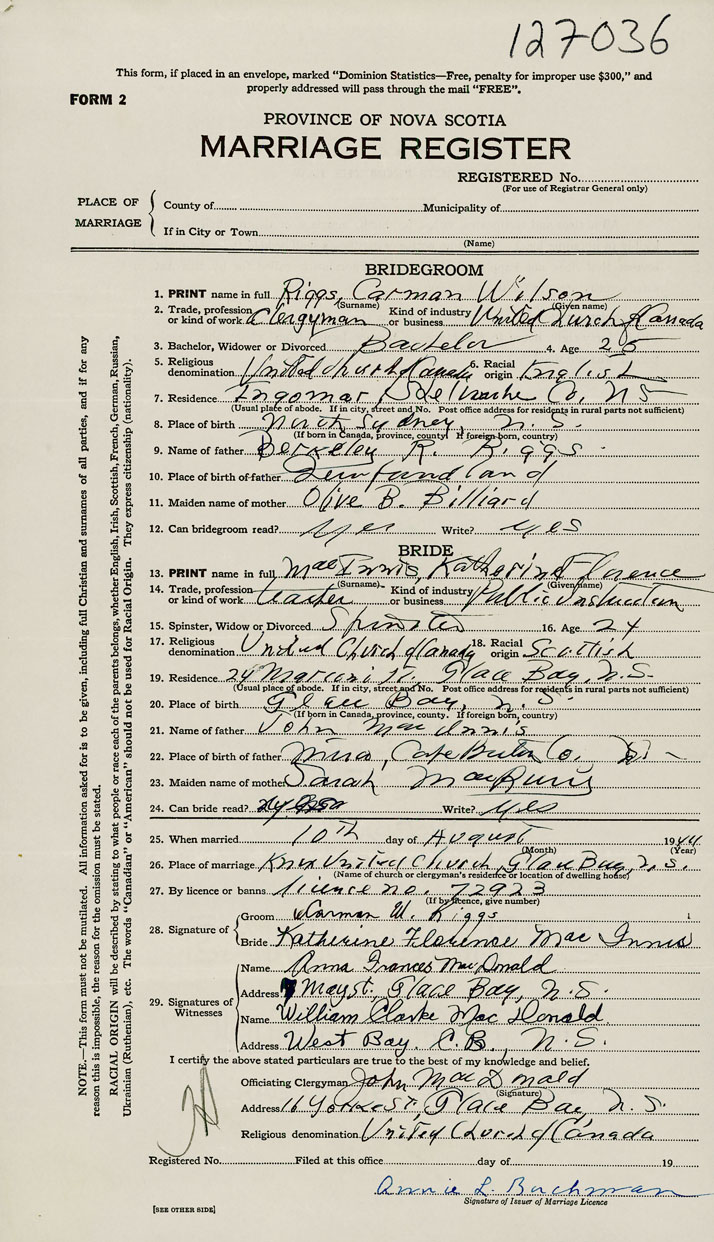 127036
This form, if placed in an envelope, marked "Dominion Statistics—Free, penalty for improper use $300," and
properly addressed will pass through the mail "FREE".
FORM 2
PROVINCE OF NOVA SCOTIA
MARRIAGE REGISTER
REGISTERED No.
(For use of Registrar General only)
PLACE OF MARRIAGE
County of Municipality of
If in City or Town
(Name)
BRIDEGROOM
1. PRINT name in full Riggs, Carman Wilson
(Surname) (Given name)
2. Trade, profession or kind of work Clergyman Kind of industry or business United Church of Canada
3. Bachelor, Widower or Divorced Bachelor 4. Age 25
5. Religious denomination United Church of Canada 6. Racial origin English
7. Residence Ingomar, Shelburne Co. NS
(Usual place of abode. If in city, street and No. Post office address for residents in rural parts not sufficient)
8. Place of birth North Sydney, N.S.
(If born in Canada, province, county. If foreign born, country)
9. Name of father Berkeley R. Riggs
10. Place of birth of father Newfoundland
11. Maiden name of mother Olive B. Billiard
12. Can bridegroom read? yes Write? yes
BRIDE
13. PRINT name in full MacInnis, Katherine Florence
(Surname) (Given name)
14. Trade, profession or kind of work teacher Kind of industry or business Public Instruction
15. Spinster, Widow or Divorced Spinster 16. Age 24
17. Religious denomination United Church of Canada 18. Racial origin Scottish
19. Residence 24 St. Glace Bay, N.S.
(Usual place of abode. If in city, street and No. Post office address for residents in rural parts not sufficient)
20. Place of birth Glace Bay, N.S.
(If born in Canada, province, county. If foreign born, country)
21. Name of father John MacInnis
22. Place of birth of father Mira, Cape Breton Co.
23. Maiden name of mother Sarah
24. Can bride read? Write? yes
25. When married 10th day of August 1944
(Month) (Year)
26. Place of marriage Knox United Church, Glace Bay, N.S.
(Name of church or clergyman's residence or location of dwelling house)
27. By licence or banns licence no. 72923
(If by licence, give number)
28. Signature of
Groom Carman W. Riggs
Bride Katherine Florence MacInnis
29. Signatures of Witnesses
Name Anna Frances MacDonald
Address May st. Glace Bay, N.S.
Name William Clarke MacDonald
Address West Bay, C.B., N.S.
I certify the above stated particulars are true to the best of my knowledge and belief.
Officiating Clergyman John MacDonald
(Signature)
Address 16 York St., Glace Bay, N.S.
Religious denomination United Church of Canada
Registered No. Filed at this office day of 19
Annie L. Buchman
Signature of Issuer of Marriage Licence
[SEE OTHER SIDE]
NOTE.—This form must not be mutilated. All information asked for is to be given, including full Christian and surnames of all parties, and if for any
reason this is impossible, the reason for the omission must be stated.
RACIAL ORIGIN will be described by stating to what people or race each of the parents belongs, whether English, Irish, Scottish, French, German, Russian,
Ukrainian (Ruthenian), etc. The words "Canadian" or "American" should not be used for Racial Origin. They express citizenship (nationality).